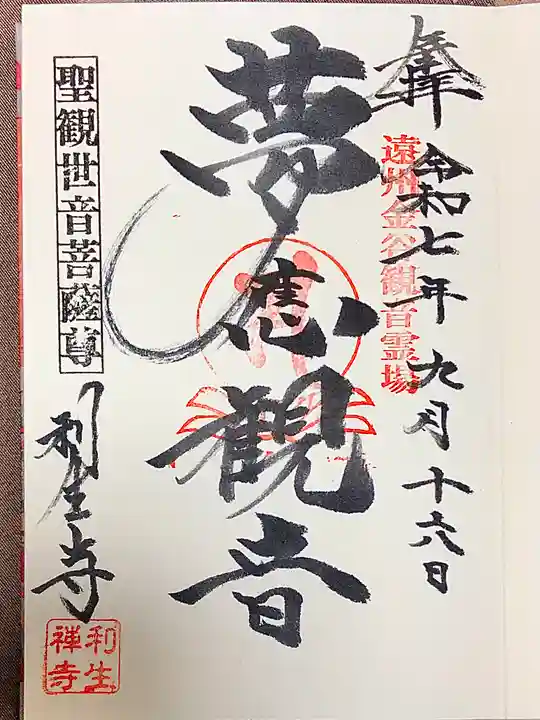 奉拝
令和七年九月十六日
遠州金谷観音霊場
夢応観音
聖観世音菩薩尊
利生寺
利生
禅寺